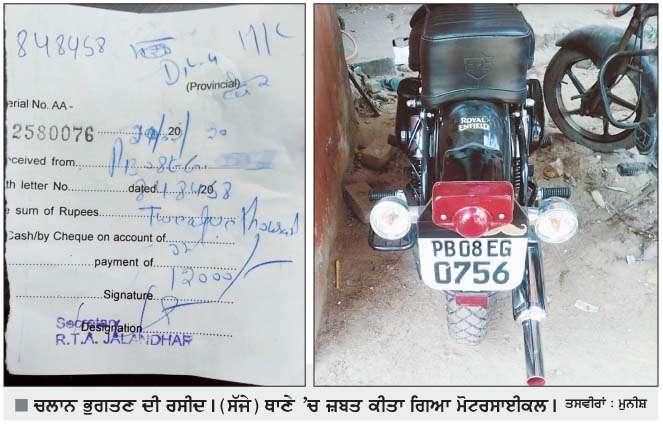 848458
M/C
DL-4
(Provincial)
erial No. AA-
2580076
20 20
ceived from PB08EG
th letter No. dated 848458/20
e sum of Rupees Twelve Thousand
Cash/by Cheque on account of
payment of 12000/-
Signature
Designation
Secretary
R.T.A. JALANDHAR
ROYAL
ENFIELD
PB08EG
0756
ਚਲਾਨ ਭੁਗਤਣ ਦੀ ਰਸੀਦ। (ਸੱਜੇ) ਥਾਣੇ 'ਚ ਜ਼ਬਤ ਕੀਤਾ ਗਿਆ ਮੋਟਰਸਾਈਕਲ। ਤਸਵੀਰਾਂ : ਮੁਨੀਸ਼